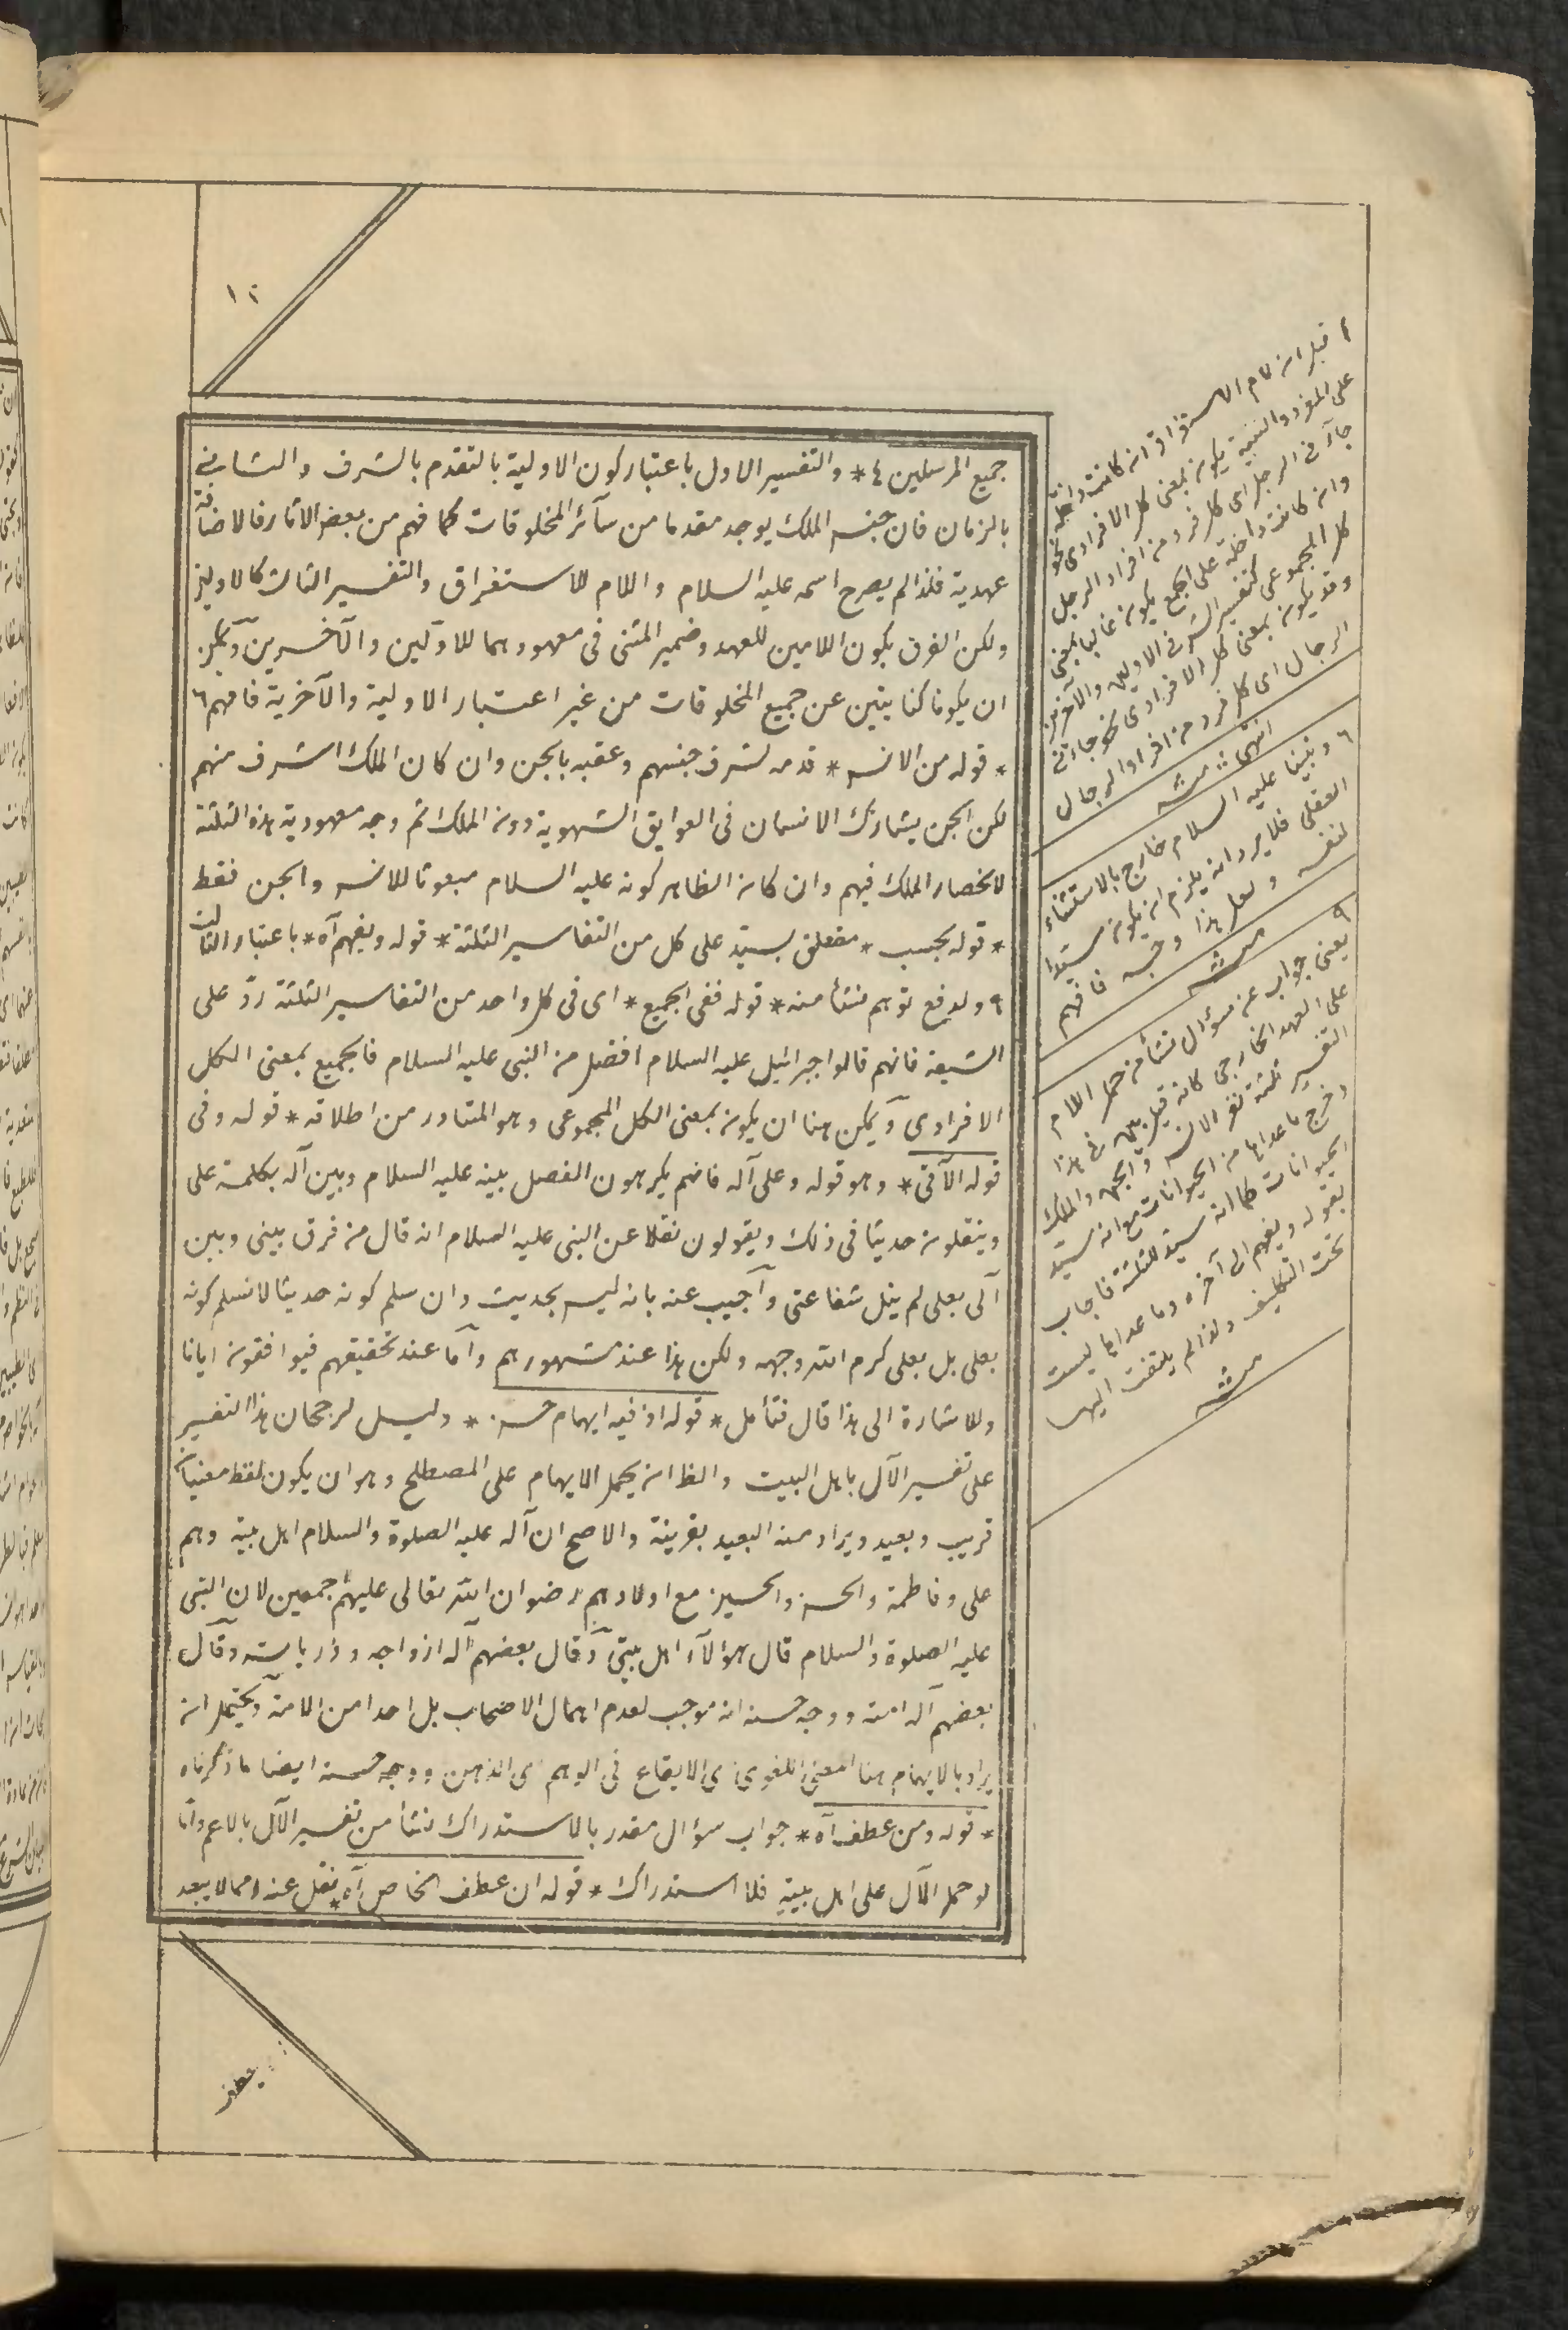 ١٢
جميع المرسلين ٤ * والتفسير الاول باعتبار كون الاولية بالتقدم بالشرف والثاني
بالزمان فان جنس الملك يوجد مقدما من سآئر المخلوقات كما فهم من بعض الآثار فالاضافة
عهدية فلذا لم يصرح اسمه عليه السلام واللام للاستغراق والتفسير الثالث كالاولين
ولكن الفرق بكون اللامين للعهد وضمير المثنى في معهودهما للاولين والآخرين ويمكن
ان يكونا كنايتين عن جميع المخلوقات من غير اعتبار الاولية والآخرية فافهم ٦
* قوله من الانس * قدمه لشرف جنسهم وعقبه بالجن وان كان الملك اشرف منهم
لكن الجن يشارك الانسان في العوايق الشهوية دون الملك ثم وجه معهودية هذه الثلثة
لانحصار الملك فيهم وان كان الظاهر كونه عليه السلام مبعوثا للانس والجن فقط
* قوله بحسب * متعلق بسيد على كل من التفاسير الثلثة * قوله ويفهم آه * باعتبار الثالث
٩ ولدفع توهم منشأ منه * قوله ففي الجميع * اى فى كل واحد من التفاسير الثلثة ردّ على
الشيعة فانهم قالوا جبرائيل عليه السلام افضل من النبى عليه السلام فالجميع بمعنى الكل
الافرادى ويمكن هنا ان يكون بمعنى الكل المجموعى وهو المتبادر من اطلاقه * قوله وفى
قوله الآتى * وهو قوله وعلى آله فانهم يكرهون الفصل بينه عليه السلام وبين آله بكلمة على
وينقلون حديثا فى ذلك ويقولون نقلا عن النبى عليه السلام انه قال من فرق بينى وبين
آلى بعلى لم ينل شفاعتى وآجيب عنه بانه ليس بحديث وان سلم كونه حديثا لا نسلم كونه
بعلى بل بعلى كرم الله وجهه ولكن هذا عند مشهورهم وآما عند تحقيقهم فيوافقون ايانا
وللاشارة الى هذا قال فتأمل * قوله اذ فيه ايهام حسن * دليل لرجحان هذا التفسير
على تفسير الآل باهل البيت والظ ان يحمل الايهام على المصطلح وهو ان يكون لفظ معنيان
قريب وبعيد ويراد منه البعيد بقرينة والاصح ان آله عليه الصلوة والسلام اهل بيته وهم
على وفاطمة والحسن والحسين مع اولادهم رضوان الله تعالى عليهم اجمعين لان النبى
عليه الصلوة والسلام قال هؤلآء اهل بيتى وقال بعضهم آله ازواجه وذرياته وقال
بعضهم آله امته ووجه حسنه انه موجب لعدم اهمال الاصحاب بل احدا من الامة ويحتمل ان
يراد بالايهام هنا المعنى اللغوى اى الايقاع فى الوهم اى الذهن ووجه حسنه ايضا ما ذكرناه
* قوله ومن عطف آه * جواب سؤال مقدر بالاستدراك نشأ من تفسير الآل بالاعم واما
لو حمل الآل على اهل بيته فلا استدراك * قوله ان عطف الخاص آه * نقل عنه مما لا يبعد
٤ قيل ان لام الاستغراق ان كانت داخلة
على المفرد والتثنية يكون بمعنى كل الافرادى نحو
جآءنى الرجل اى كل فرد من افراد الرجل
وان كانت داخلة على الجمع يكون غالبا بمعنى
كل المجموعى كتفسير الشر فى الاولين والآخرين
وقد يكون بمعنى كل الافرادى نحو جاءنى
الرجال اى كل فرد من افراد الرجال
انتهى منه
٦ ونبينا عليه السلام خارج بالاستثناء
العقلى فلا يرد انه يلزم ان يكون سيدا
لنفسه ولعل هذا وجه فافهم
منه
٩ يعنى جواب عن سؤال نشأ من حمل اللام
على العهد الخارجى كانه قيل بين فى هذا
التفسير ثلثة نفر الانس والجن والملك
وخرج ما عداها من الحيوانات مع انه سيد
الحيوانات كما انه سيد للثلثة فاجاب
بقوله ويفهم الى آخره وما عداها ليست
تحت التكليف ولذا لم يلتفت اليها
منه